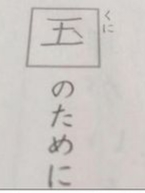 くに
玉のために